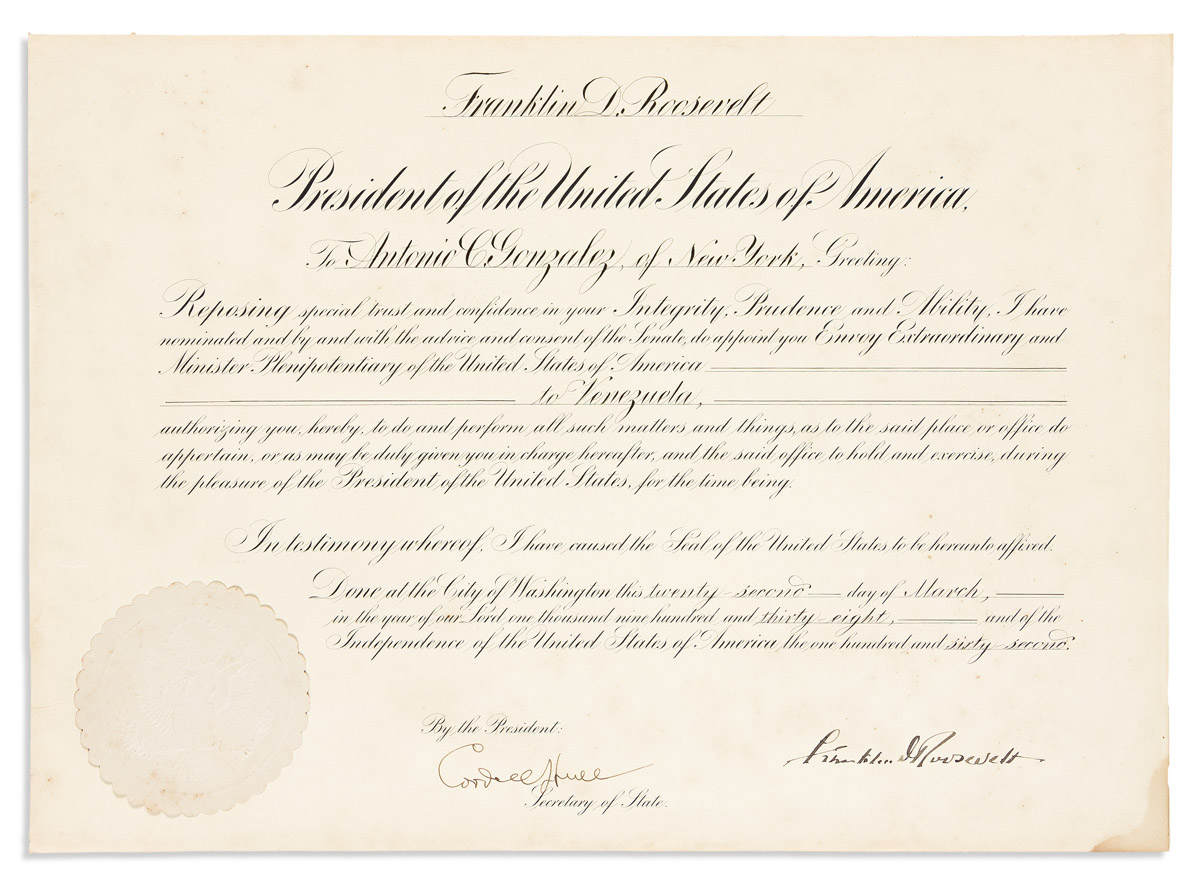 Franklin D. Roosevelt
President of the United States of America,
To Antonio C. Gonzalez, of New York, Greeting:
Reposing special trust and confidence in your Integrity, Prudence and Ability, I have
nominated and by and with the advice and consent of the Senate, do appoint you Envoy Extraordinary and
Minister Plenipotentiary of the United States of America
to Venezuela,
authorizing you, hereby, to do and perform all such matters and things, as to the said place or office do
appertain, or as may be duly given you in charge hereafter, and the said office to hold and exercise, during
the pleasure of the President of the United States, for the time being.
In testimony whereof, I have caused the Seal of the United States to be hereunto affixed.
Done at the City of Washington this twenty-second day of March,
in the year of our Lord one thousand nine hundred and thirty-eight, and of the
Independence of the United States of America the one hundred and sixty-second.
By the President:
Cordell Hull
Franklin D Roosevelt
Secretary of State.